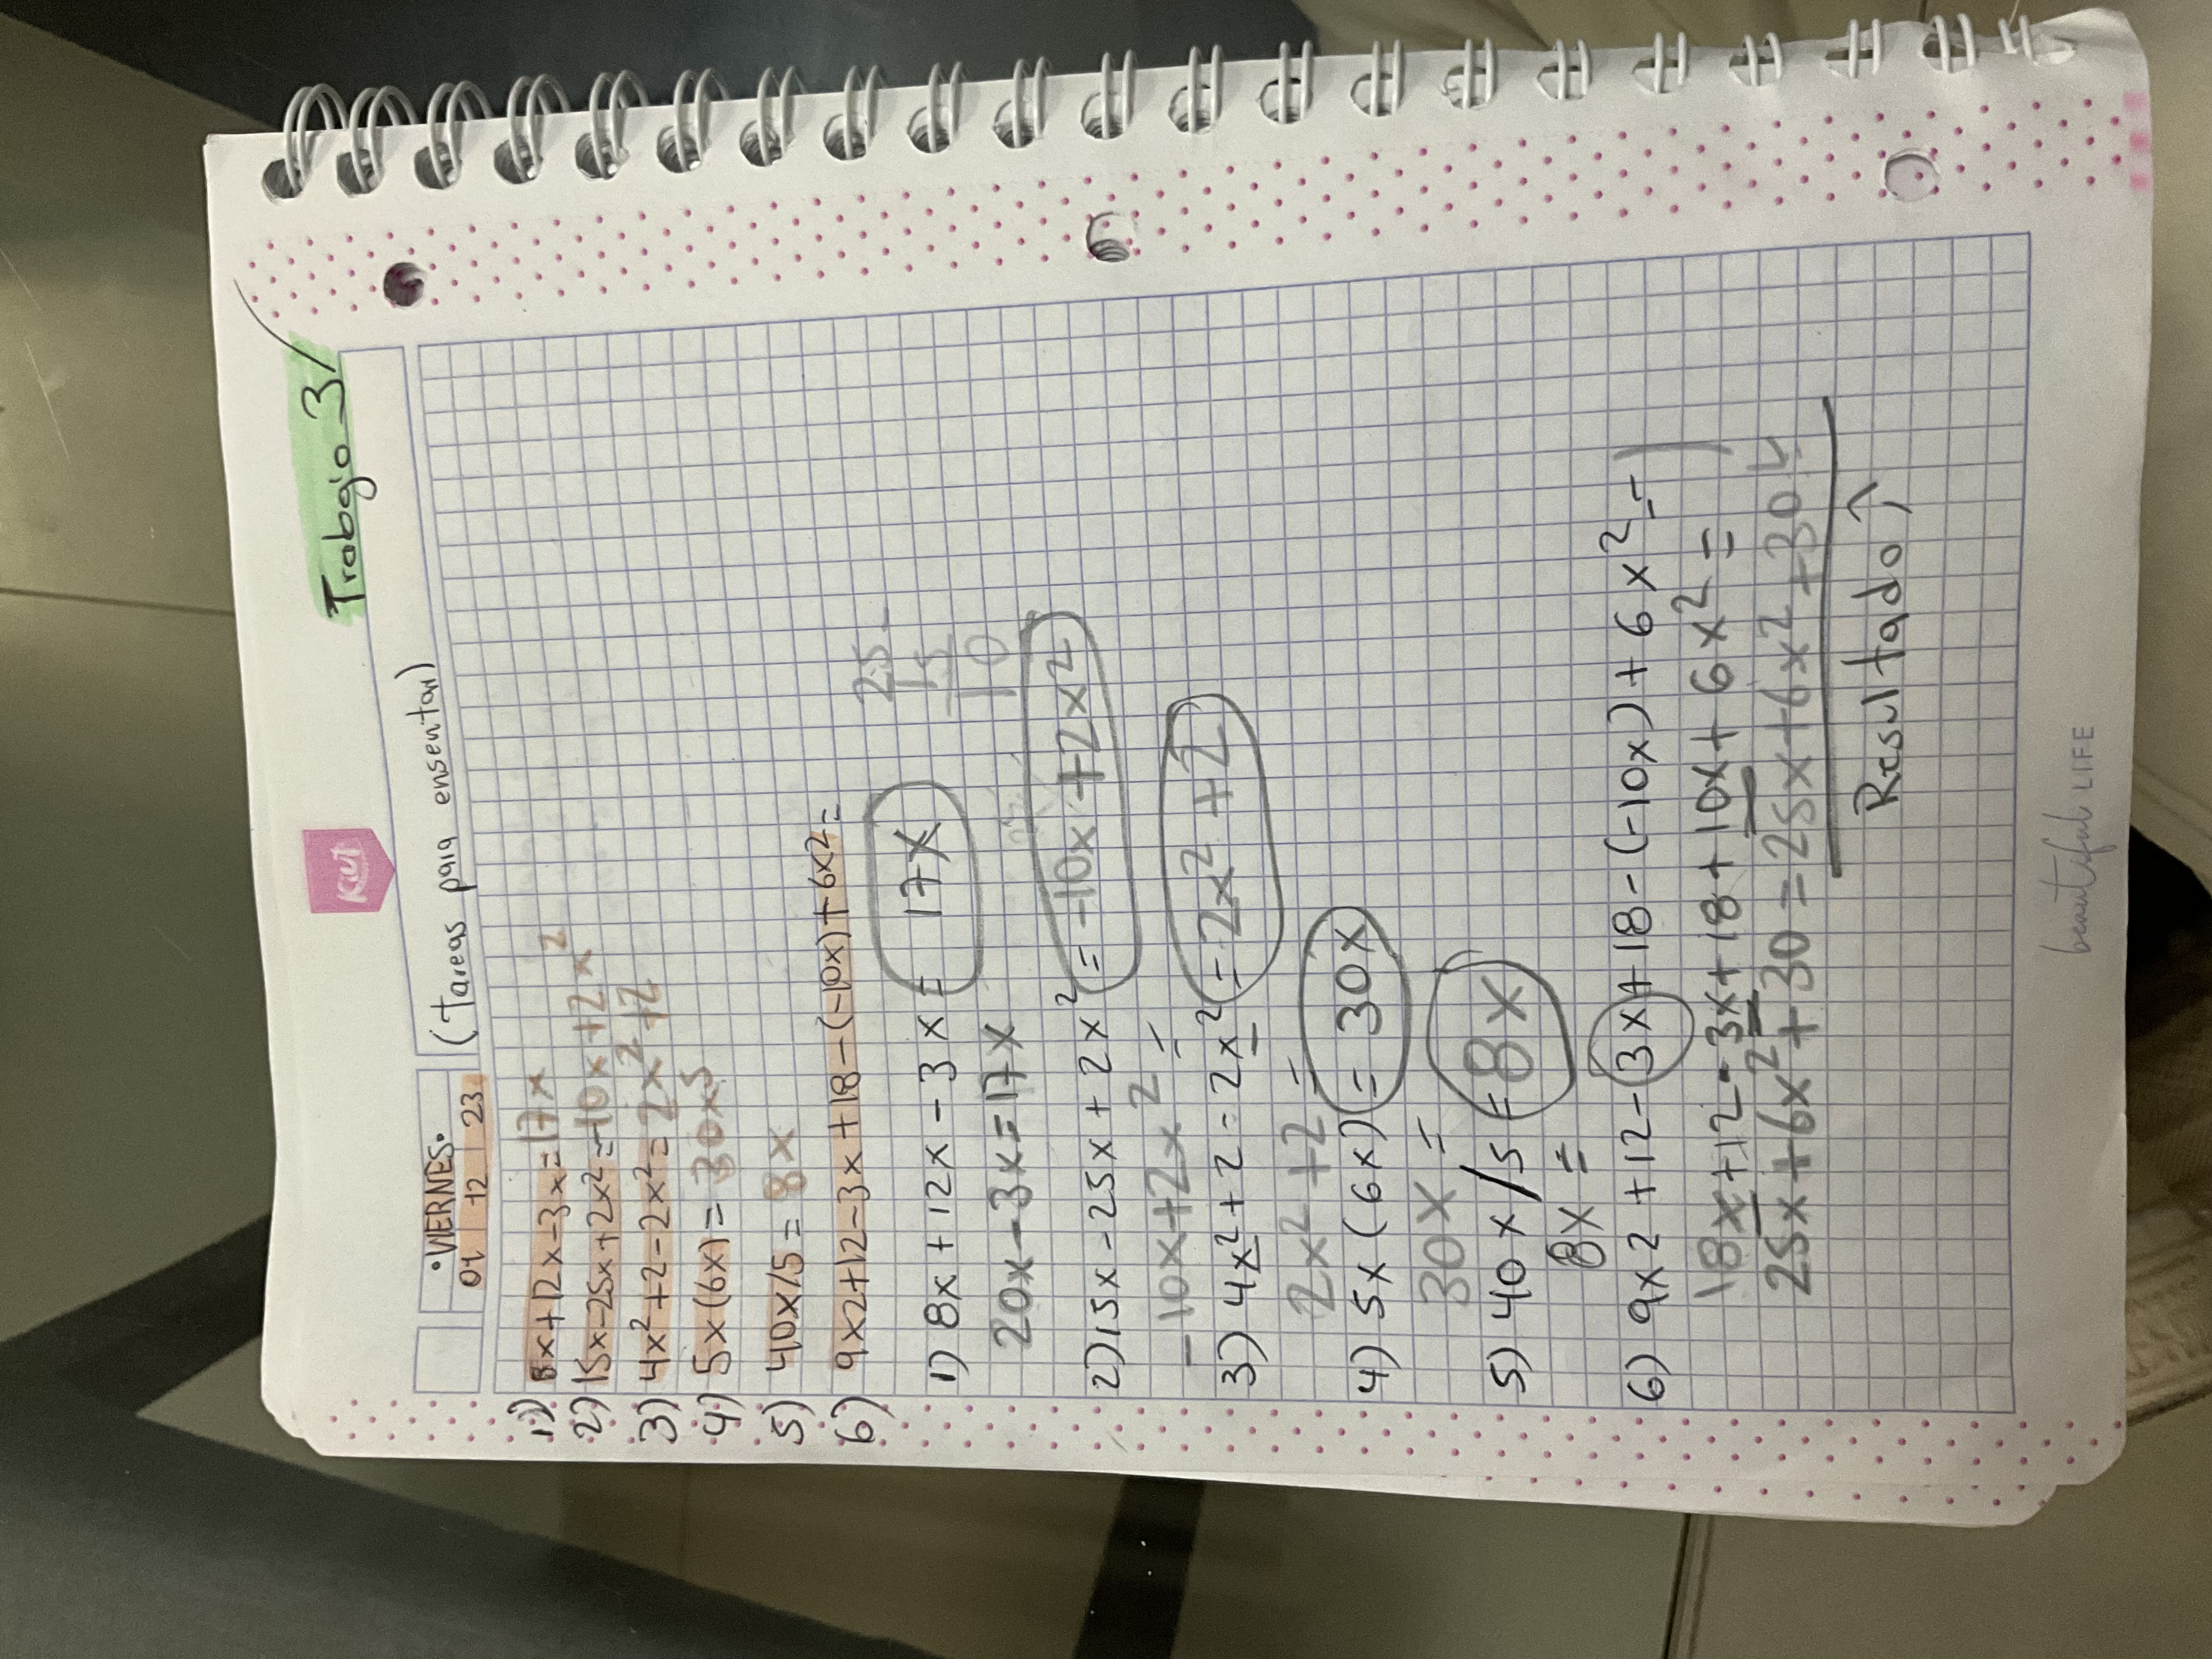 Trabagio 3/
Kiut
•VIERNES•
01 12 23
(tareas para ensenitar)
1) 8x+12x-3x=17x
2) 15x-25x+2x²=-10x+2x²
3) 4x²+2-2x²=2x²+2
4) 5x(6x)=30x5
5) 40x/5=8x
6) 9x2+12-3x+18-(-10x)+6x2=
1) 8x+12x-3x= 17x
20x-3x=17x
25-
15
10
2) 15x-25x+2x²=-10x+2x²
-10x+2x2=
3) 4x²+2-2x²=2x²+2
2x²+2=
4) 5x(6x)=30x
30x=
5) 40x/5=8x
8x=
6) 9x2+12-3x+18-(-10x)+6x²=
18x+12-3x+18+10x+6x²=
25x+6x²+30=25x+6x²+30
Resultado↑
beautiful LIFE